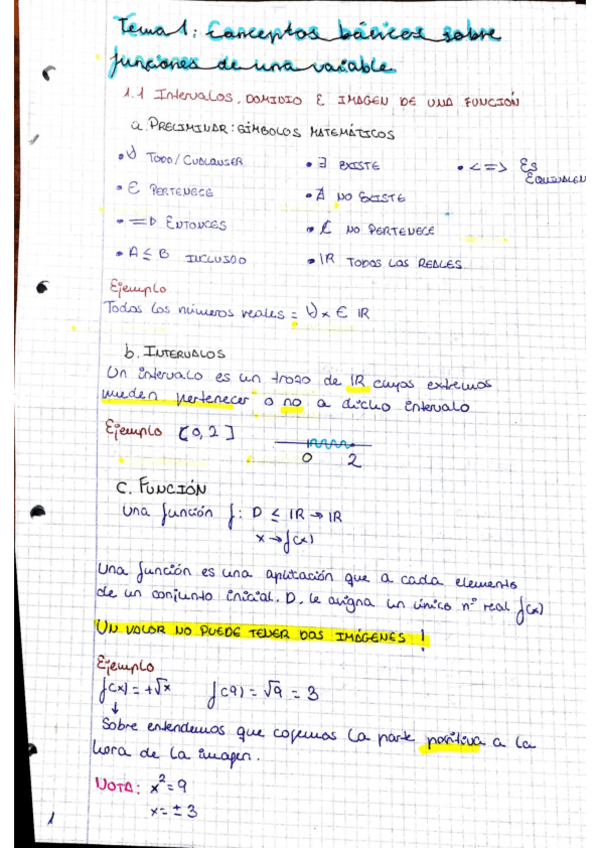 Tema 1: Conceptos básicos sobre
funciones de una variable
1.1 INTERVALOS, DOMINIO E IMAGEN DE UNA FUNCIÓN
a. PRELIMINAR: SÍMBOLOS MATEMÁTICOS
• ∀ TODO/CUALQUIER • ∃ EXISTE • <=> ES
EQUIVALEN
• ∈ PERTENECE • ∄ NO EXISTE
• => ENTONCES • ∉ NO PERTENECE
• A ⊆ B INCLUSDO • IR TODOS LOS REALES
Ejemplo
Todos los números reales = ∀x ∈ IR
b. INTERVALOS
Un intervalo es un trozo de IR cuyos extremos
pueden pertenecer o no a dicho intervalo
Ejemplo [0,2]
0 2
C. FUNCIÓN
Una función f: D ⊆ IR → IR
x → f(x)
Una función es una aplicación que a cada elemento
de un conjunto inicial. D, le asigna un único nº real f(x)
UN VALOR NO PUEDE TENER DOS IMÁGENES !
Ejemplo
f(x) = +√x f(9) = √9 = 3
↓
Sobre entendemos que cogemos la parte positiva a la
hora de la imagen.
NOTA: x² = 9
x = ± 3
1